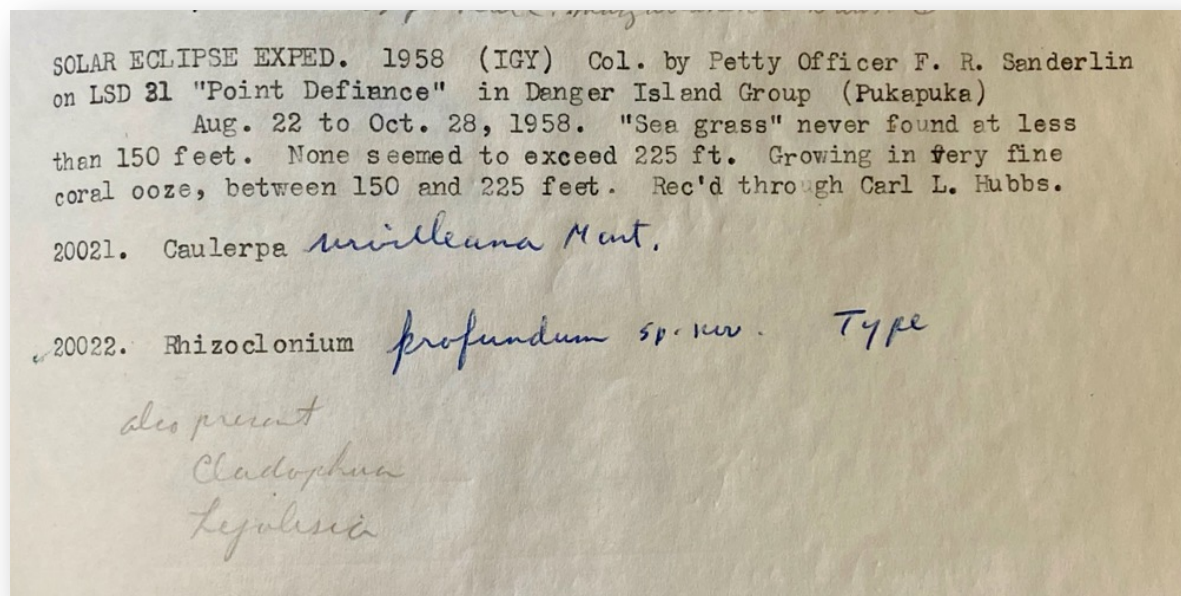 SOLAR ECLIPSE EXPED. 1958 (IGY) Col. by Petty Officer F. R. Sanderlin
on LSD 31 "Point Defiance" in Danger Island Group (Pukapuka)
Aug. 22 to Oct. 28, 1958. "Sea grass" never found at less
than 150 feet. None seemed to exceed 225 ft. Growing in very fine
coral ooze, between 150 and 225 feet. Rec'd through Carl L. Hubbs.
20021. Caulerpa urvilleana Mont.
20022. Rhizoclonium profundum sp. nov. Type
also present
Cladophora
Lejolisia